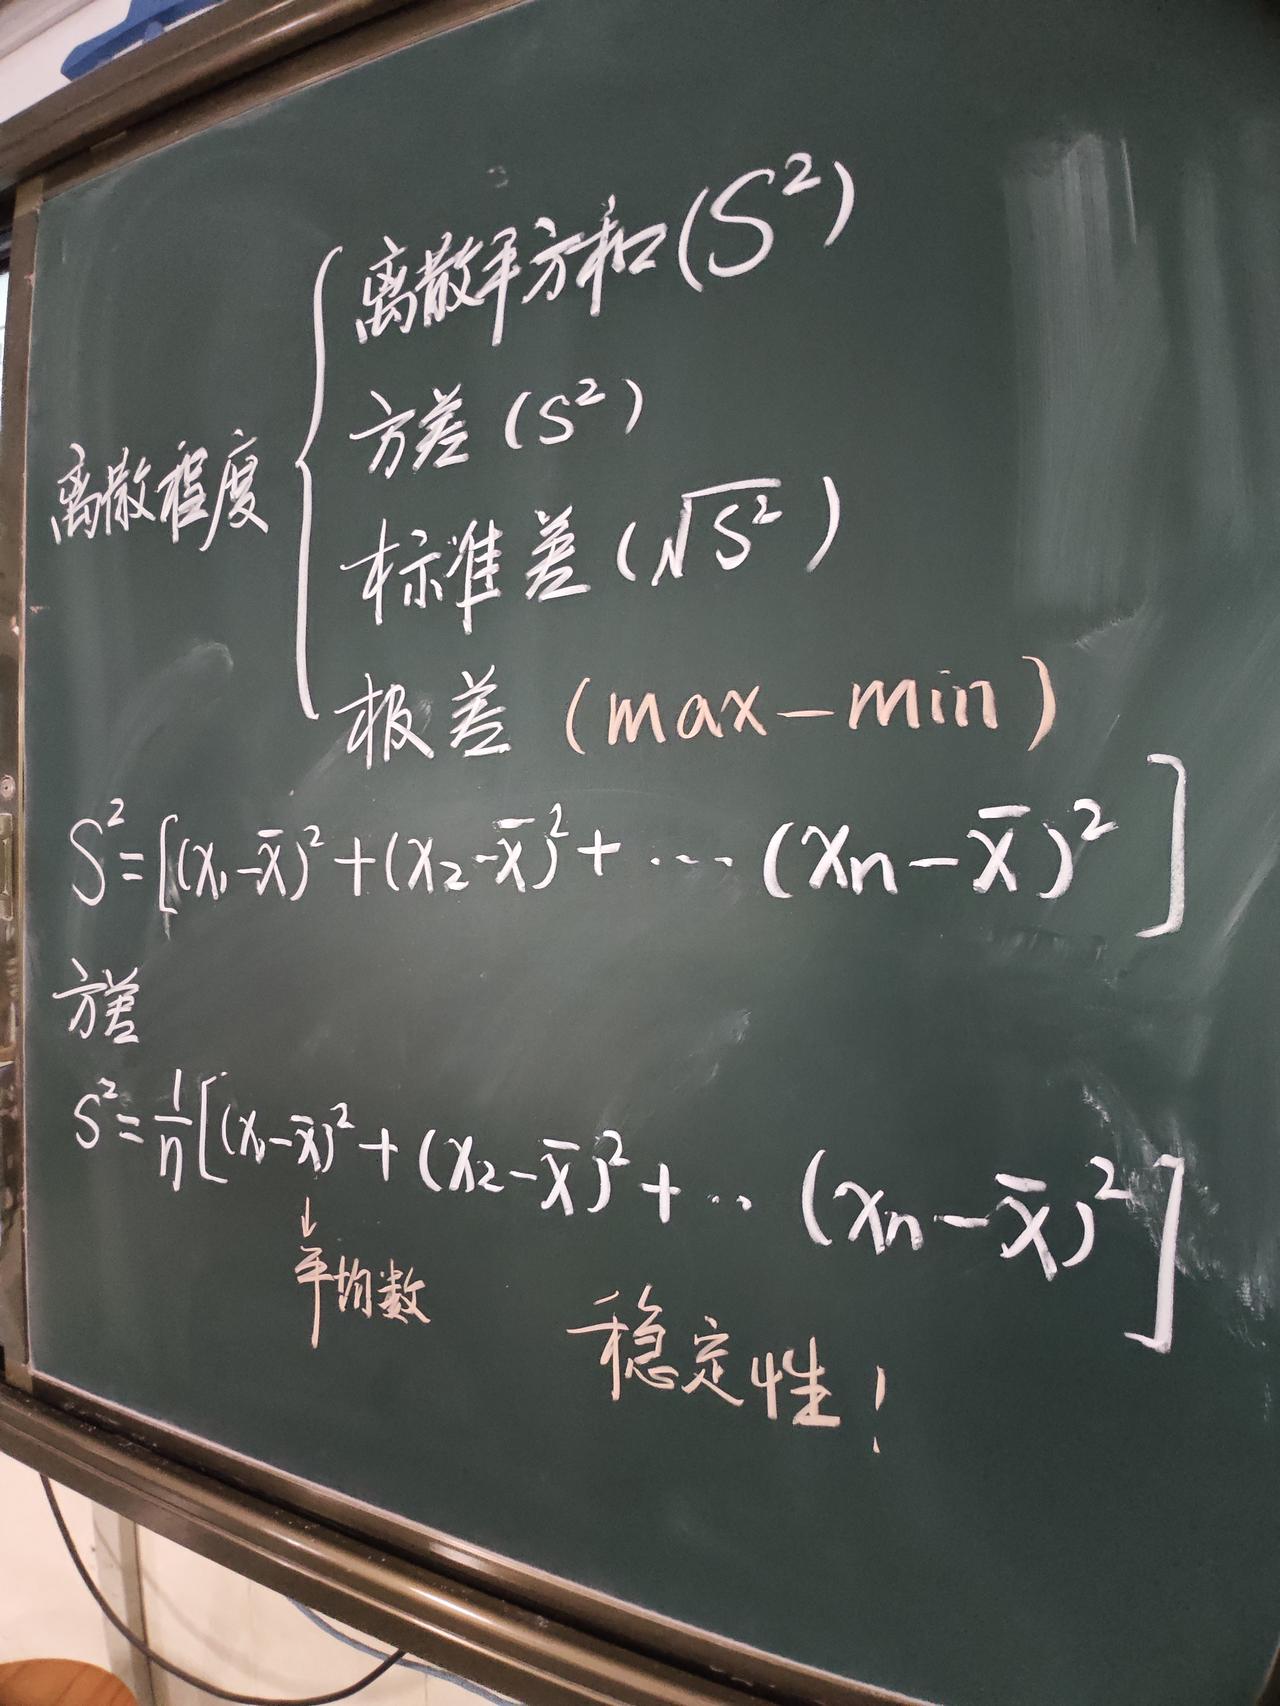 离散平方和(S²)
方差(s²)
离散程度
标准差(√S²)
极差(max-min)
S²=[(x₁-x̄)²+(x₂-x̄)²+…(xn-x̄)²]
方差
s²=1/n[(x₁-x̄)²+(x₂-x̄)²+..(xn-x̄)²]
↓
平均数
稳定性!